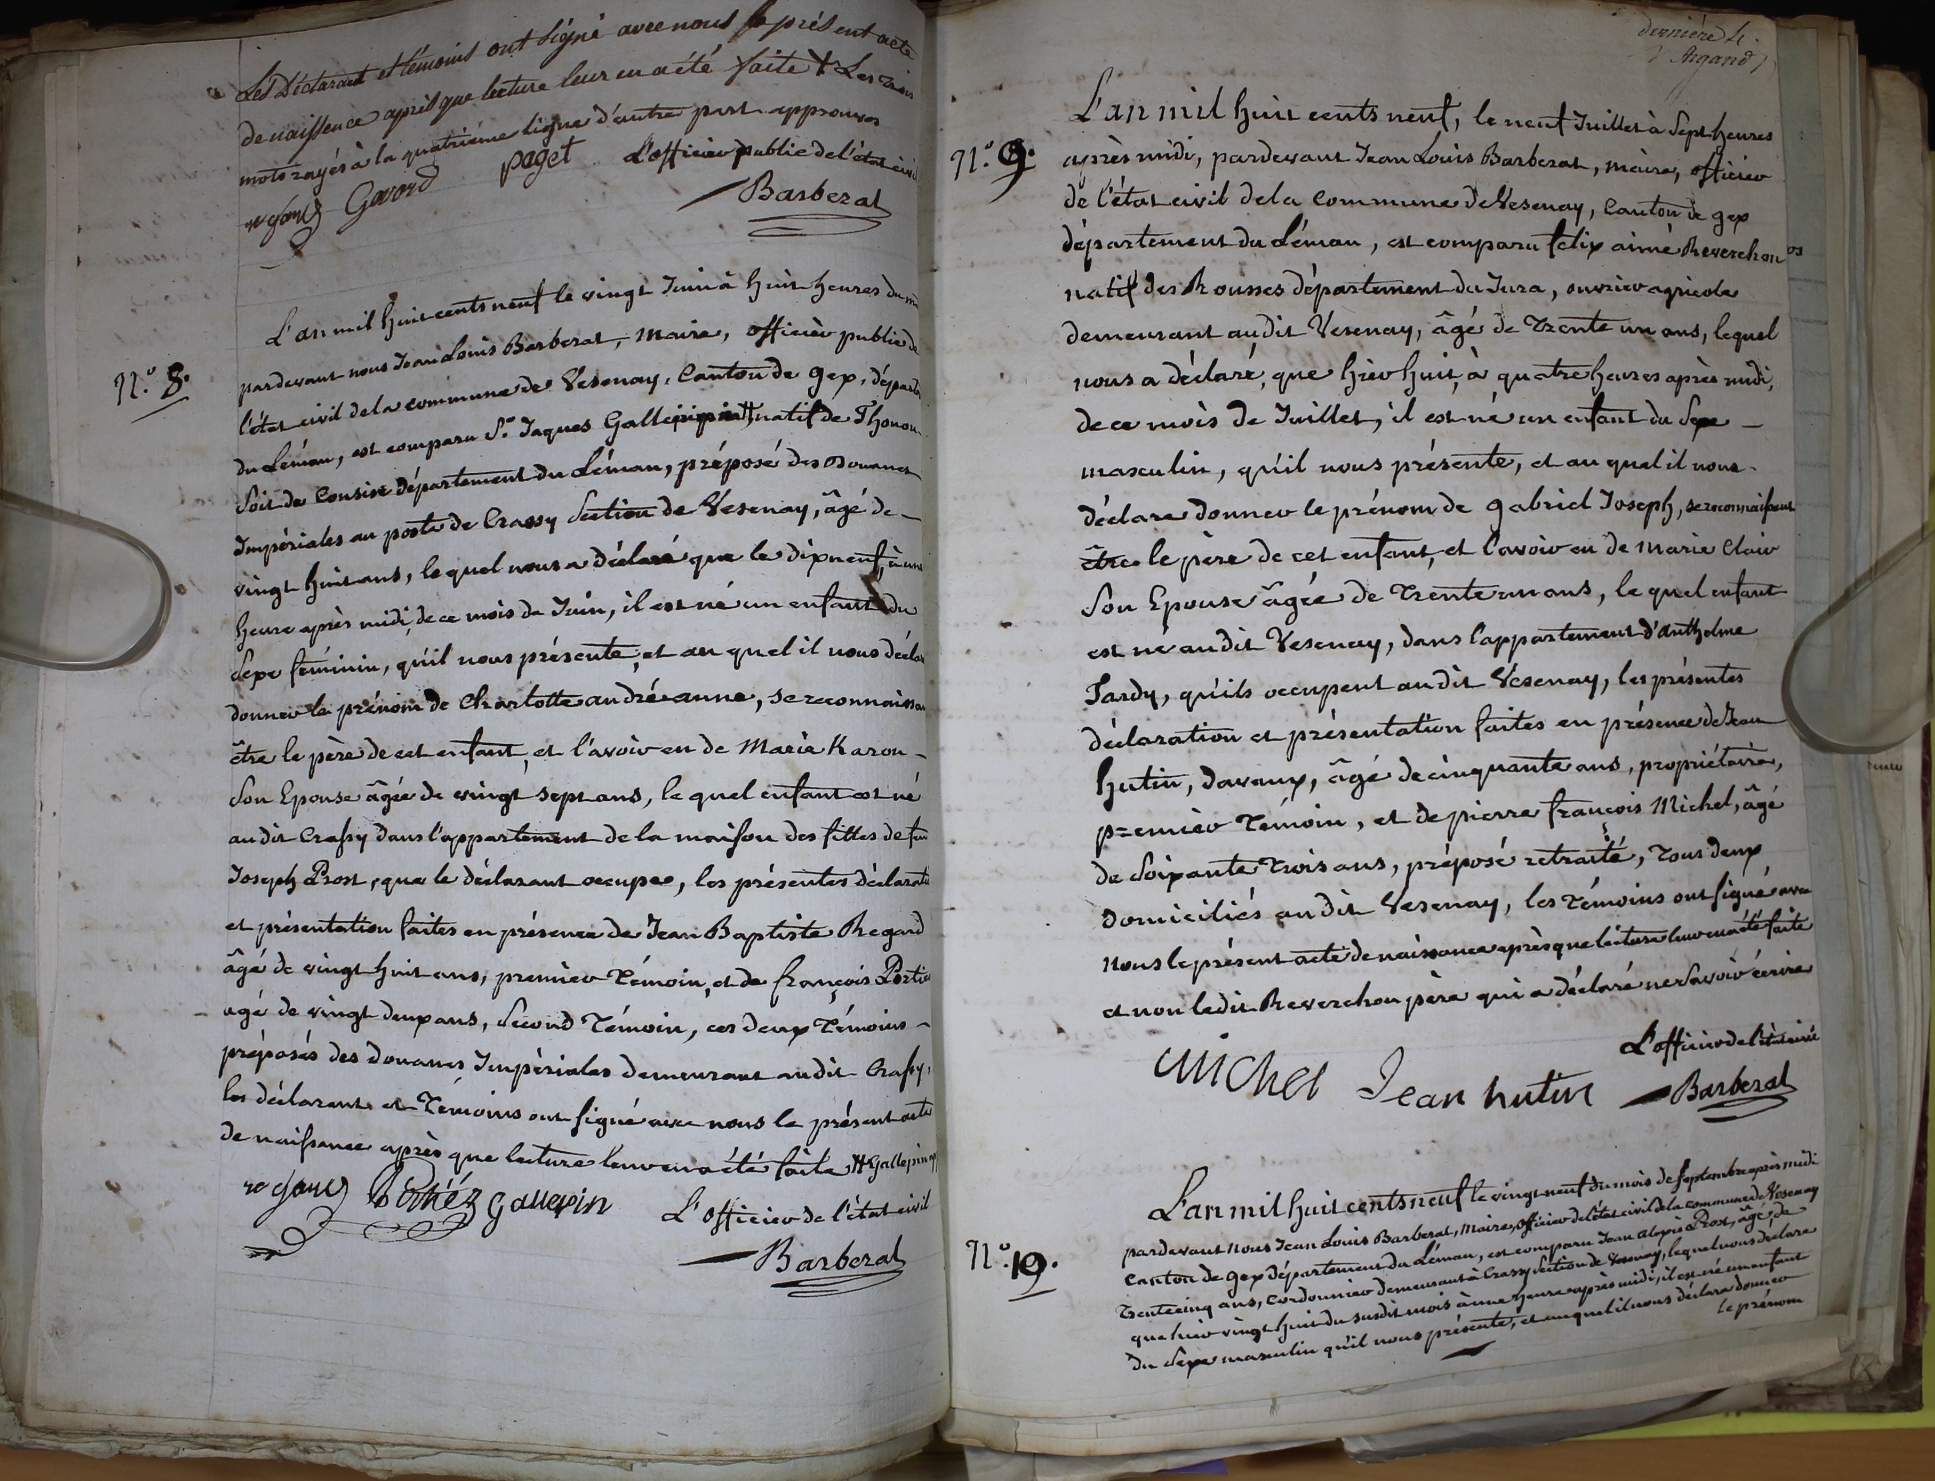 Les Déclarant et témoins ont signé avec nous le présent acte
de naissence après que lecture leur en a été faite + Les trois
mots rayés à la quatrième ligne d'autre part approuvés
regard Gavard paget L'officier public de l'état civil
Barberat
N.° 8.
L'an mil huit cents neuf le vingt Juin à huit heures du
pardevant nous Jean Louis Barberat, Maire, officier public de
l'état civil de la commune de Vesenay, Canton de gex, départe
du Léman, est comparu S.r Jaques Gallepin natif de Thonon
soit de Consise département du Léman, préposé des Douanes
Impériales au poste de Crassy Section de Vesenay, âgé de —
vingt huit ans, lequel nous a déclaré que le dixneuf, à une
heure après midi, de ce mois de Juin, il est né un enfant du
Sexe féminin, qu'il nous présente, et au quel il nous déclar
donner le prénom de Charlotte andréanne, se reconnaissan
être le père de cet enfant, et l'avoir eu de Marie Karon —
son Epouse âgée de vingt sept ans, le quel enfant est né
au dit Crassy dans l'appartement de la maison des filles de feu
Joseph Prost, que le déclarant occupe, les présentes déclarati
et présentation faites en présence de Jean Baptiste Regard
âgé de vingt huit ans, premier témoin, et de françois Portie
agé de vingt deux ans, second Témoin, ces deux Témoins —
préposés des douanes Impériales demeurant au dit Crassy,
les déclarant et Témoins ont signé avec nous le présent acte
de naissance après que lecture leur en a été faite # Gallepin
regard Portiéz gallepin L'officier de l'état civil
Barberat
dernière
Argand
N.° 9.
L'an mil huit cents neuf, le neuf Juillet à Sept heures
après midi, pardevant Jean Louis Barberat, maire, officier
de l'état civil de la Commune de Vesenay, Canton de gex
département du Léman, est comparu felix aimé Reverchon
natif des Rousses département du Jura, ouvrier agricole
demeurant au dit Vesenay, âgé de Trente un ans, lequel
nous a déclaré, que hier huit, à quatre heures après midi,
de ce mois de Juillet, il est né un enfant du Sexe —
masculin, qu'il nous présente, et au quel il nous
déclare donner le prénom de gabriel Joseph, se reconnaissant
être le père de cet enfant, et l'avoir eu de Marie Clair
son Epouse âgée de Trente un ans, le quel enfant
est né au dit Vesenay, dans l'appartement d'anthelme
Tardy, qu'ils occupent au dit Vesenay, les présentes
déclaration et présentation faites en présence de Jean
hutin, davaux, âgé de cinquante ans, propriétaire,
premier Témoin, et de pierre françois Michel, âgé
de Soixante Trois ans, préposé retraité, Tous deux
domiciliés au dit Vesenay, les Témoins ont signé avec
nous le présent acte de naissance après que lecture leur en a été faite
et non le dit Reverchon père qui a déclaré ne Savoir écrire
L'officier de l'état civil
Michel Jean hutin Barberat
N.° 10.
L'an mil huit cents neuf le vingt neuf du mois de Septembre après midi
pardevant nous Jean Louis Barberat, Maire, officier de l'état civil de la commune de Vesenay
canton de gex département du Léman, est comparu Jean aloysie Prost, âgé de
Trente cinq ans, cordonnier demeurant à Crassy Section de Vesenay, lequel nous déclare
que hier vingt huit du susdit mois à une heure après midi, il est né un enfant
du Sexe masculin qu'il nous présente, et auquel il nous déclare donner
le prénom